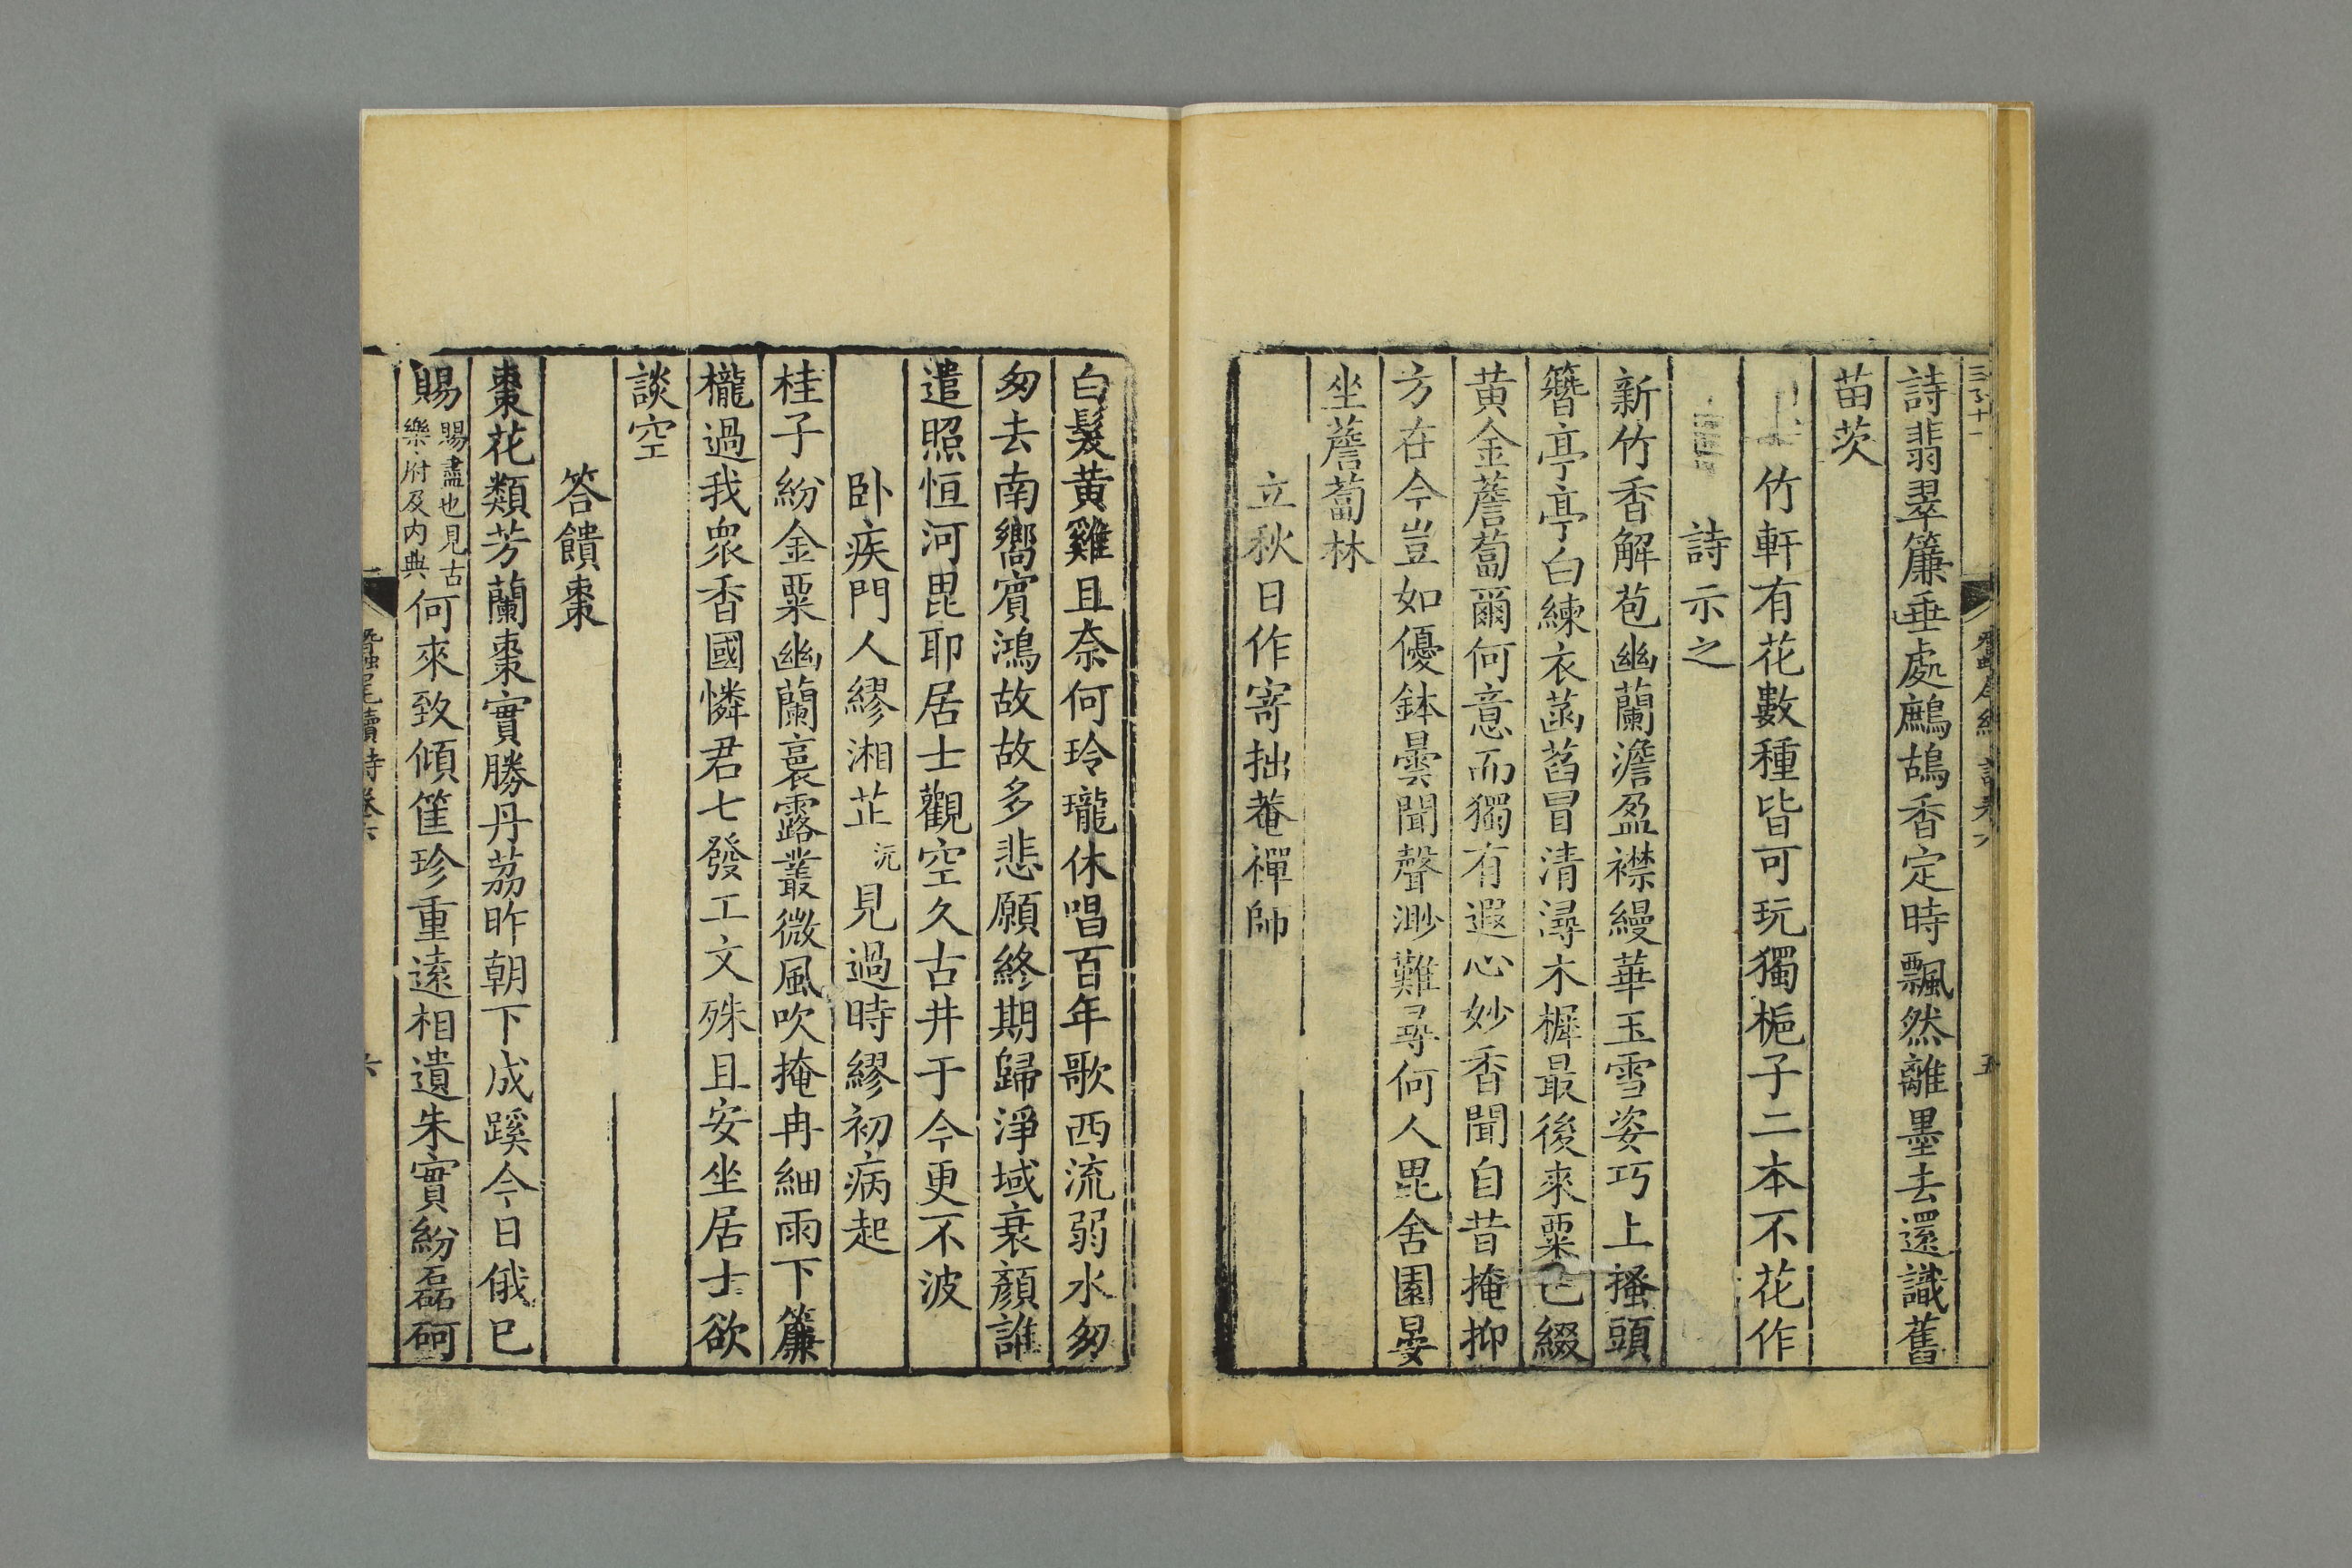 詩翡翠簾垂處鷓鴣香定時飄然離墨去還識舊
苗茨
竹軒有花數種皆可玩獨梔子二本不花作
詩示之
新竹香解苞幽蘭澹盈襟縵華玉雪姿巧上搔頭
簪亭亭白練衣菡萏冒清潯木樨最後來粟已綴
黄金薝蔔爾何意而獨有遐心妙香聞自昔掩抑
方在今豈如優鉢曇聞聲渺難尋何人毘舍園晏
坐薝蔔林
立秋日作寄拙菴禪師
白髮黄雞且奈何玲瓏休唱百年歌西流弱水匆
匆去南嚮賓鴻故故多悲願終期歸淨域衰顏誰
遣照恒河毘耶居士觀空久古井于今更不波
卧疾門人繆湘芷沅見過時繆初病起
桂子紛金粟幽蘭裛露叢微風吹掩冉細雨下簾
櫳過我衆香國憐君七發工文殊且安坐居士欲
談空
答饋棗
棗花類芳蘭棗實勝丹荔昨朝下成蹊今日俄已
賜賜盡也見古樂府及内典何來致傾筐珍重遠相遺朱實紛磊砢
蠶尾續詩卷六
六